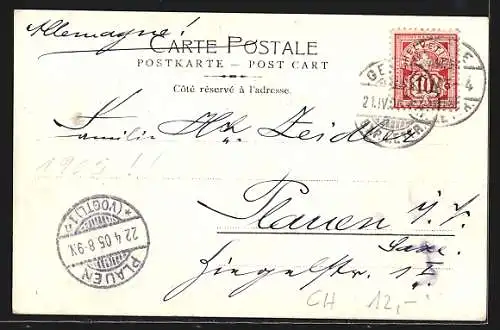 Allemagne!
CARTE POSTALE
POSTKARTE – POST CART
Côté réservé à l'adresse.
HELVETIA
10
21.IV.
4
Familie Zeidler
1905!!
Plauen i. V.
Saxe.
Ziegelstr. 1 I
PLAUEN
22.4.05.8-9.V.
*(VOGTL.)1*
CH 12,-